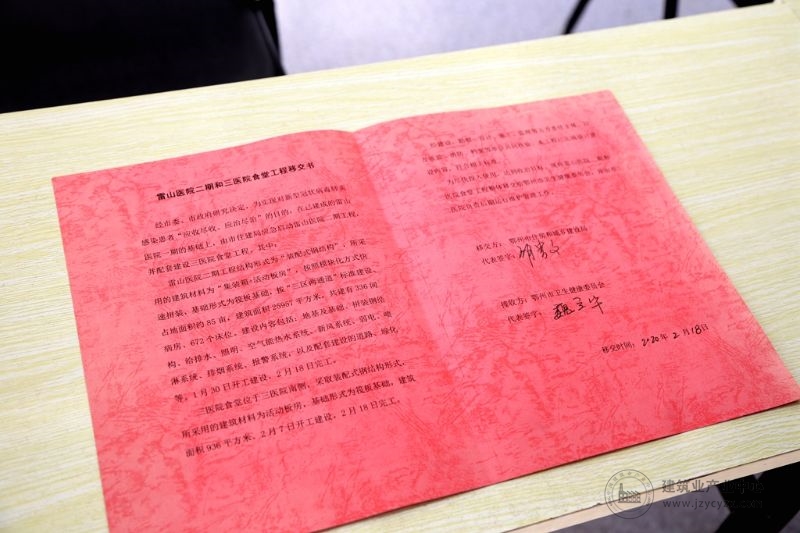 雷山医院二期和三医院食堂工程移交书
经市委、市政府研究决定，为实现对新型冠状病毒肺炎
感染患者“应收尽收、应治尽治”的目的，在已建成的雷山
医院一期的基础上，由市住建局应急启动雷山医院二期工程，
并配套建设三医院食堂工程，其中：
雷山医院二期工程结构形式为“装配式钢结构”，所采
用的建筑材料为“集装箱+活动板房”，按照模块化方式快
速拼装，基础形式为筏板基础，按“三区两通道”标准建设，
占地面积约85亩，建筑面积25957平方米，共建有336间
病房、672个床位。建设内容包括：地基及基础、拼装钢结
构、给排水、照明、空气能热水系统、新风系统、弱电、喷
淋系统、排烟系统、报警系统，以及配套建设的道路、绿化
等，1月30日开工建设，2月18日完工。
三医院食堂位于三医院南侧，采取装配式钢结构形式，
所采用的建筑材料为活动板房，基础形式为筏板基础，建筑
面积936平方米，2月7日开工建设，2月18日完工。
经建设、勘察、设计、施工、监理等五方责任主体，以
设内容，符合相关标准。
医院负责后期运行维护管理工作。
移交方：鄂州市住房和城乡建设局
代表签字：
接收方：鄂州市卫生健康委员会
代表签字：
移交时间：2020年2月18日
建筑业产业中心
www.jzycyzx.com